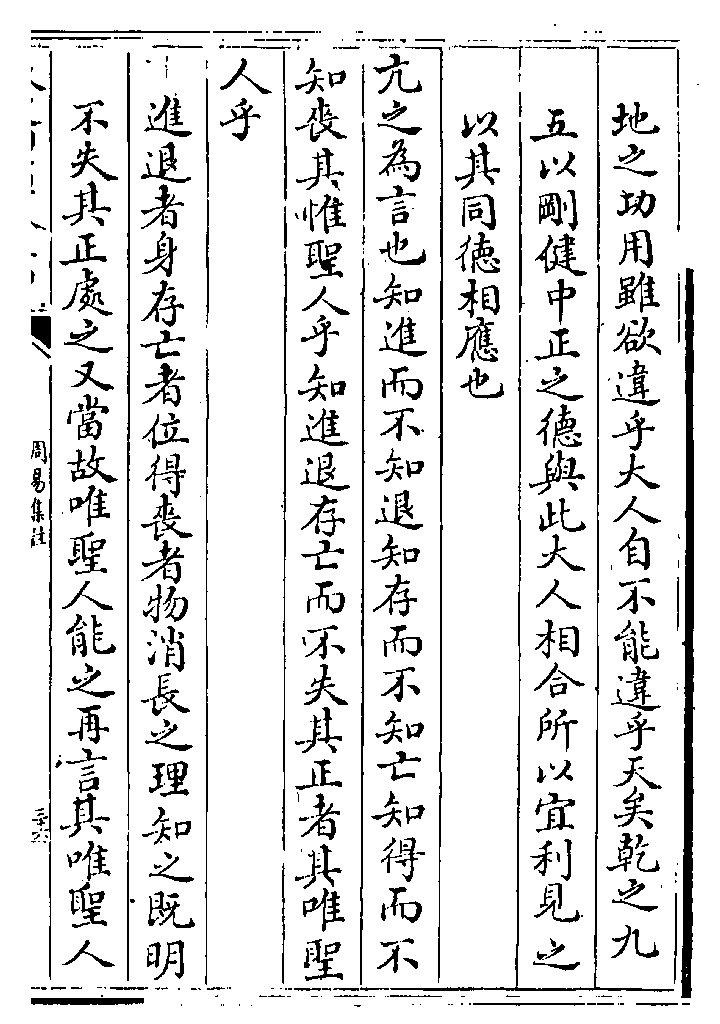 地之功用雖欲違乎大人自不能違乎天矣乾之九
五以剛健中正之德與此大人相合所以宜利見之
以其同德相應也
亢之為言也知進而不知退知存而不知亡知得而不
知喪其惟聖人乎知進退存亡而不失其正者其唯聖
人乎
進退者身存亡者位得喪者物消長之理知之既明
不失其正處之又當故唯聖人能之再言其唯聖人
周易集註